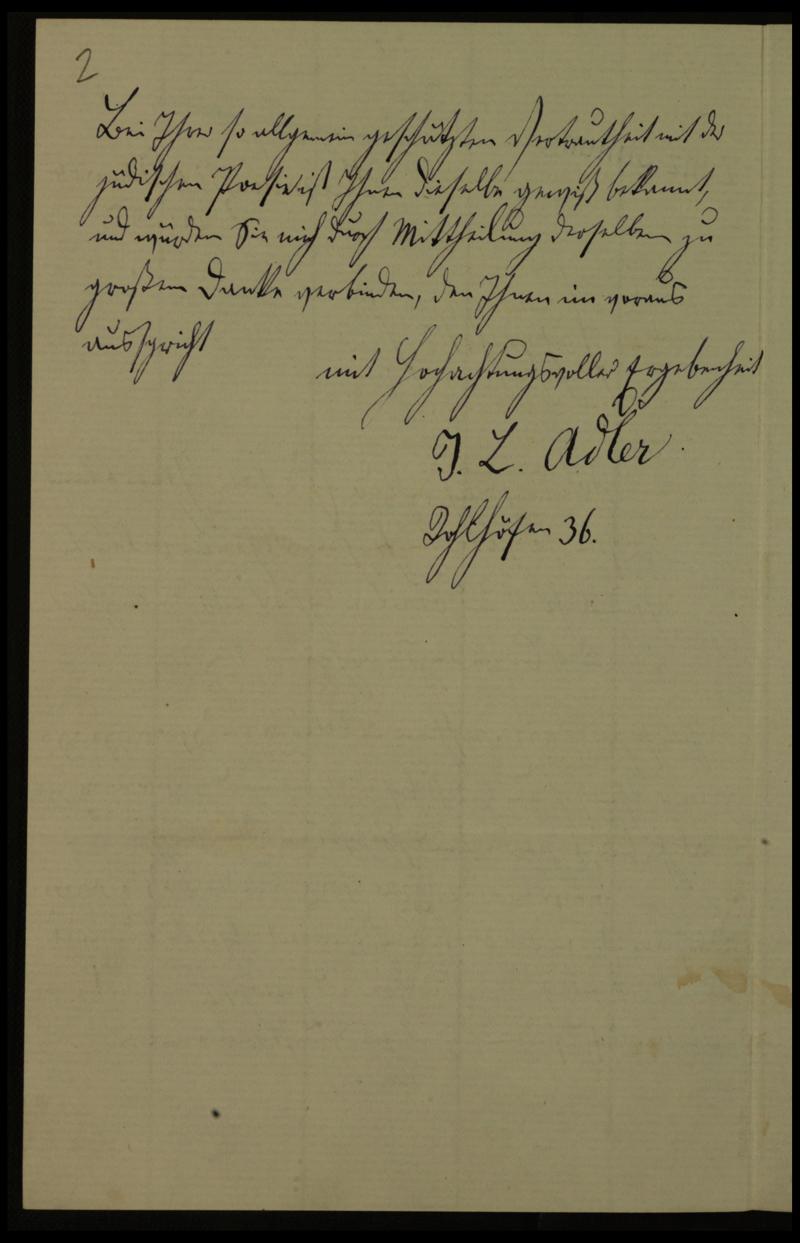 2
Bei Ihrer so allgemein geschätzten Vertrautheit mit der
jüdischen Poesie ist Ihnen dieselbe gewiß bekannt,
und würden Sie mich durch Mittheilung derselben zu
großem Danke verbinden, den Ihnen im voraus
ausspricht
mit Hochachtungsvoller Ergebenheit
J. L. Adler
Kohlhöfen 36.